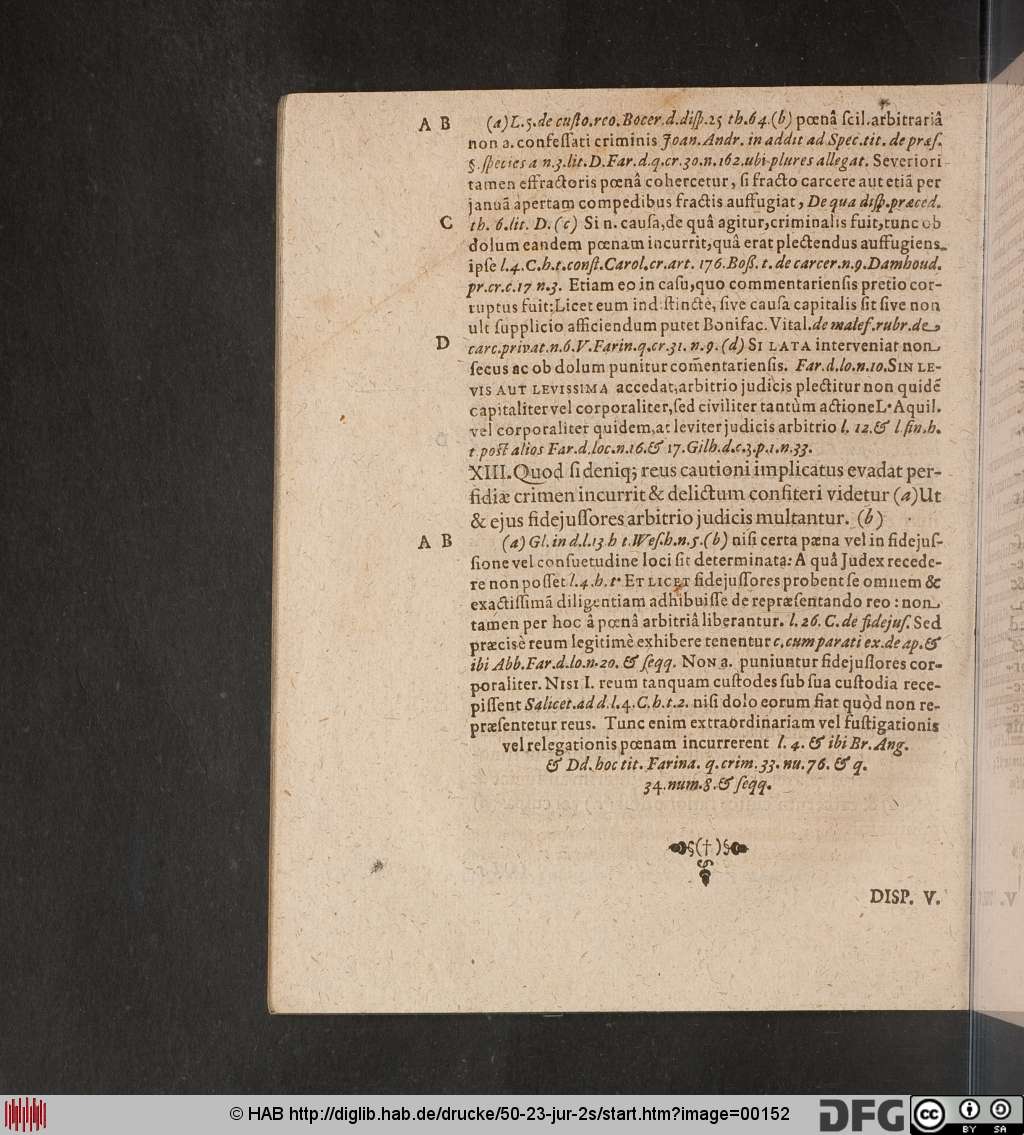 A B (a) L.5.de custo.reo.Bocer.d.disp.25 th.64.(b) pœnâ scil.arbitrariâ
non a. confessati criminis Joan. Andr. in addit ad Spec.tit. de præs.
§. species a n.3.lit.D.Far.d.q.cr.30.n.162.ubi plures allegat. Severiori
tamen effractoris pœnâ cohercetur, si fracto carcere aut etiã per
januã apertam compedibus fractis auffugiat, De qua disp.præced.
C th. 6.lit. D. (c) Si n. causa, de quâ agitur, criminalis fuit, tunc ob
dolum eandem pœnam incurrit, quâ erat plectendus auffugiens
ipse l.4.C.h.t.const.Carol.cr.art. 176.Boß.t. de carcer.n.9.Damhoud.
pr.cr.c.17 n.3. Etiam eo in casu, quo commentariensis pretio cor-
ruptus fuit: Licet eum indistinctè, sive causa capitalis sit sive non
ult supplicio afficiendum putet Bonifac. Vital. de malef.rubr.de
D carc.privat.n.6.V.Farin.q.cr.31. n.9. (d) SI LATA interveniat non
secus ac ob dolum punitur com̃entariensis. Far.d.lo.n.10. SIN LE-
VIS AUT LEVISSIMA accedat, arbitrio judicis plectitur non quidẽ
capitaliter vel corporaliter, sed civiliter tantùm actione L. Aquil.
vel corporaliter quidem, at leviter judicis arbitrio l. 12. & l.fin.h.
t post alios Far.d.loc.n.16.& 17.Gilh.d.c.3.p.1.n.33.
XIII. Quod si deniq; reus cautioni implicatus evadat per-
fidiæ crimen incurrit & delictum confiteri videtur (a) Ut
& ejus fidejussores arbitrio judicis multantur. (b)
A B (a) Gl. in d.l.13 h t.Wes.h.n.5.(b) nisi certa pæna vel in fidejus-
sione vel consuetudine loci sit determinata: A quâ Judex recede-
re non posset l.4.h.t. ET LICET fidejussores probent se omnem &
exactissimã diligentiam adhibuisse de repræsentando reo : non
tamen per hoc â pœnâ arbitriâ liberantur. l. 26. C. de fidejus. Sed
præcisè reum legitimè exhibere tenentur c.cum parati ex.de ap.&
ibi Abb.Far.d.lo.n.20. & seqq. NON a. puniuntur fidejussores cor-
poraliter. NISI I. reum tanquam custodes sub sua custodia rece-
pissent Salicet.ad d.l.4.C.h.t.2. nisi dolo eorum fiat quòd non re-
præsentetur reus. Tunc enim extraordinariam vel fustigationis
vel relegationis pœnam incurrerent l. 4. & ibi Br. Ang.
& Dd. hoc tit. Farina. q. crim. 33. nu. 76. & q.
34. num. 8. & seqq.
§(†)§
DISP. V.
© HAB http://diglib.hab.de/drucke/50-23-jur-2s/start.htm?image=00152
DFG
cc BY SA